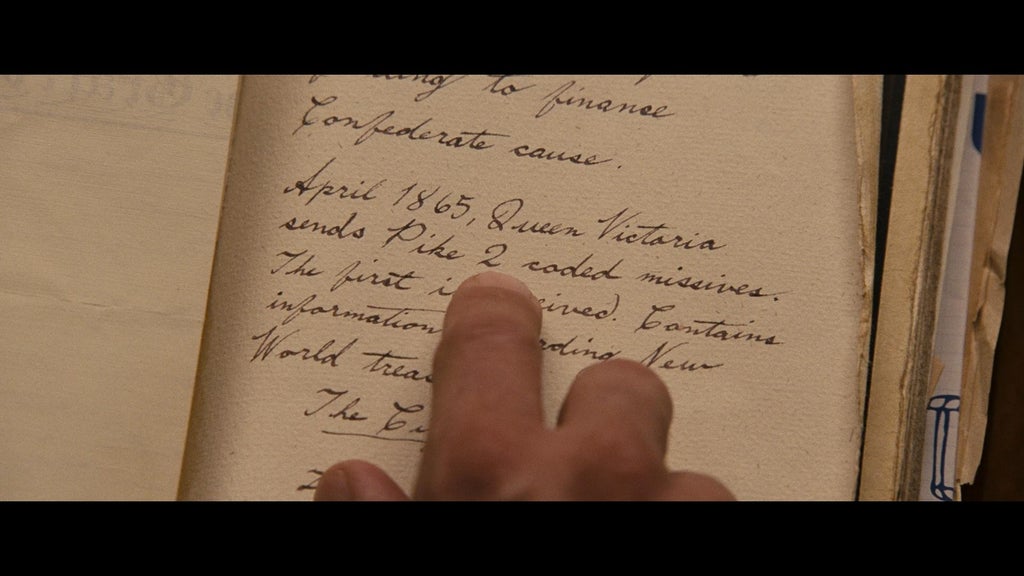 to finance
Confederate cause.
April 1865, Queen Victoria
sends Pike 2 coded missives.
The first Contains
information New
World
The